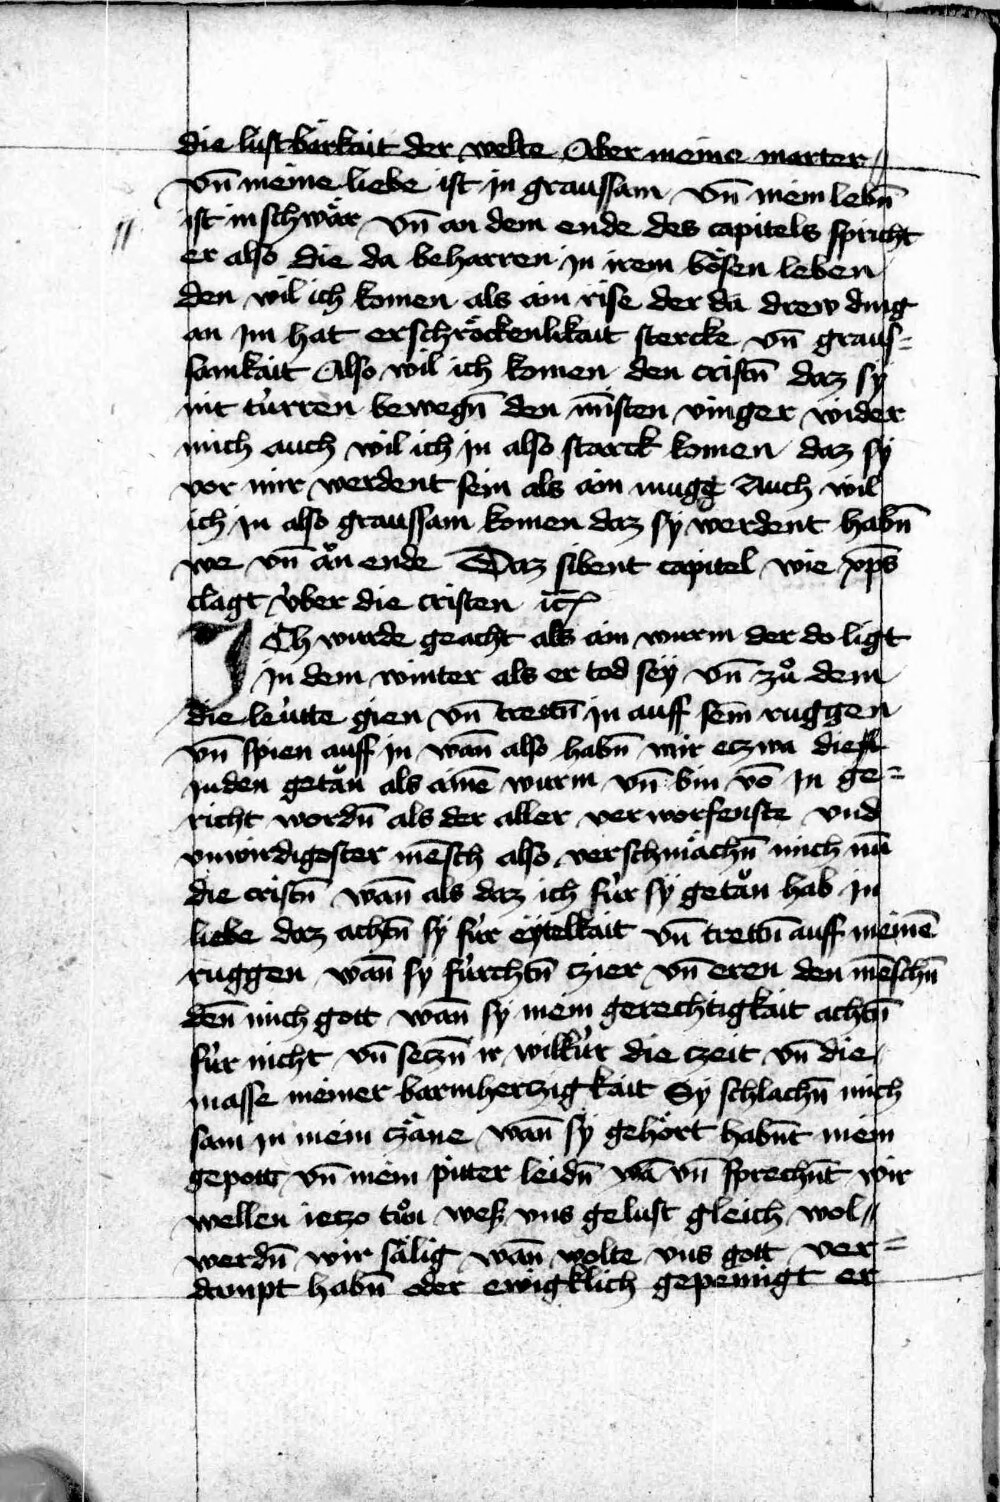 die lustbärkait der welte Aber meine marter
vn̄ meine liebe ist in graussam vn̄ mein lebn̄
ist in schwär vn̄ an dem ende des capitels spricht
er also die da beharren in irem bösen leben
den wil ich komen als ain rise der da drew ding
an im hat erschröckenlikait stercke vn̄ graus=
samkait Also wil ich komen den cristn̄ daz sy
nit türren bewegn̄ den mı̄sten vinger wider
mich auch wil ich in also starck komen daz sy
vor mir werdent sein als ain mugg Auch wil
ich in also graussam komen daz sy werdent habn̄
we vn̄ ån ende Daz sibent capitel wie xp̄s
clagt v̇ber die cristen ꝛc
ICh wurde geacht als ain wurm der do ligt
in dem winter als er tod sey vn̄ zů dem
die leütte gien vn̄ trettn̄ in auff sein̄ ruggen
vn̄ spien auff in wan̄ also habn̄ mir etzwa die
juden getån als ainē wurm vn̄ bin vō in ge=
richt wordn̄ als der aller verworfenste vnd
vnwirdigoster mēsch also verschmächn̄ mich nū
die cristn̄ wan̄ als daz ich für sy getån hab in
liebe daz achtn̄ sy für eytelkait vn̄ trettn̄ auff meinē
ruggen wan̄ sy fürchtn̄ czier vn̄ eren den mēschn̄
den̄ mich gott wan̄ sy mein gerechtigkait achtn̄
für nicht vn̄ seczn̄ ir wilkür die czeit vn̄ die
masse meiner barmherczigkait Sy schlachn̄ mich
sam in mein czäne wan̄ sy gehört habn̄t mein
gepott vn̄ mein pitter leidn̄ wā vn̄ sprechn̄t wir
wellen ietzo tůn weß vns gelust gleich wol
werdn̄ wir sälig wan̄ wolte vns gott ver=
dampt habn̄ oder ewigklich gepeinigt er